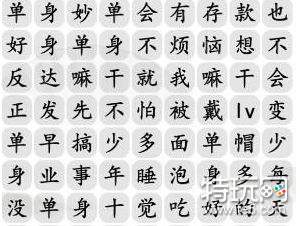 单身妙单会有存款也
好身单身不烦恼想不
反达嘛干就我嘛干会
正发先不怕被戴lv变
单早搞少多面单帽少
身业事年睡泡身多每
没单身十觉吃好的天
特玩网